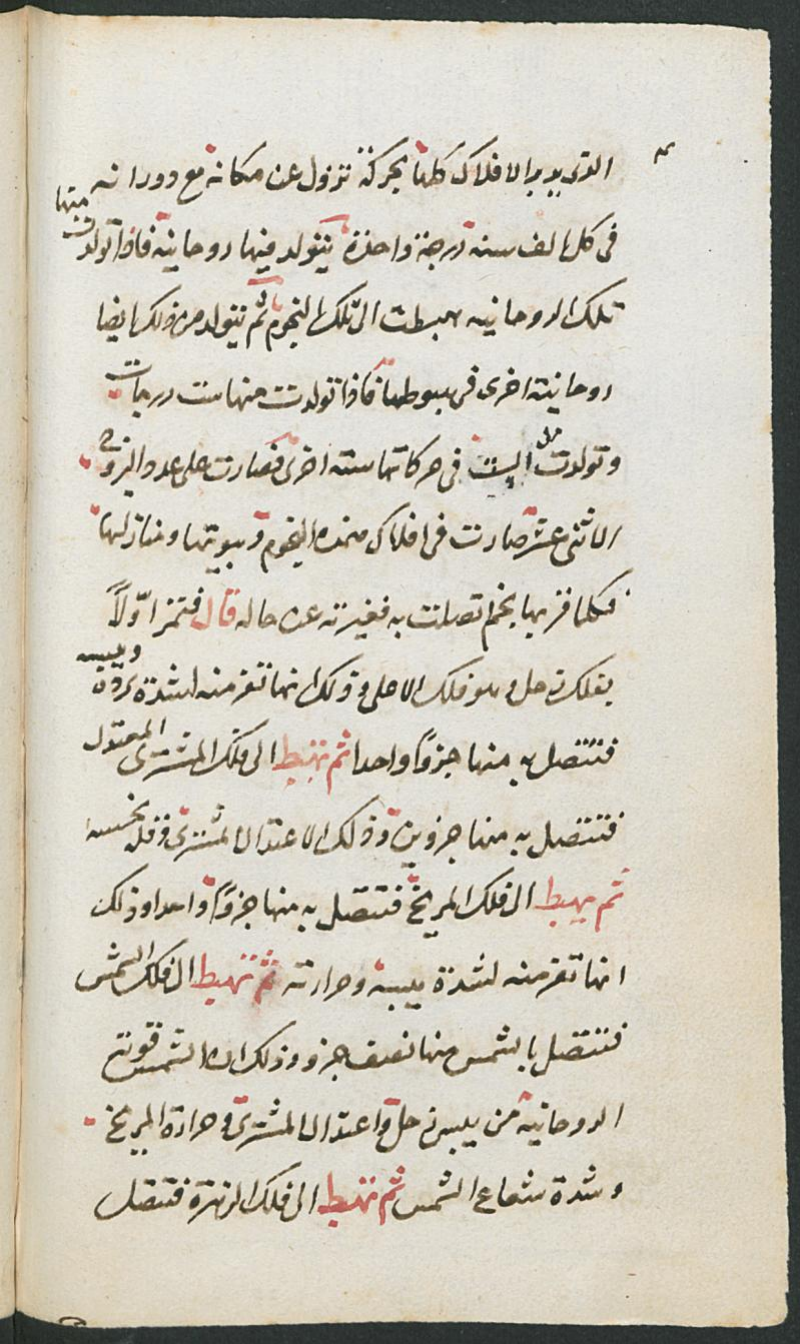 الذى يدير الافلاك كلها بحركة تزول عن مكانه مع دورانه
فى كل الف سنه درجة واحدة يتولد فيها روحانية فاذا تولدت منها
تلك الروحانيه هبطت الى تلك النجوم ثم يتولد من ذلك ايضا
روحانية اخرى فى هبوطها فاذا تولدت منها ست درجات
وتولدت من الست فى حركاتها سته اخرى فصارت على عدد البروج
الاثنى عشر صارت فى افلاك هذه النجوم وبيوتها ومنازلها
فكلما قربها نجم اتصلت به فغيرته عن حاله قال فتمر اولاً
بفلك زحل وهو فلك الاعلى وذلك انها تفر منه لشدة برده ويبسه
فتتصل به منها جزوًا واحدا ثم تهبط الى فلك المشترى المعتدل
فتتصل به منها جزوين وذلك لاعتدال المشترى وقلة نحسه
ثم يهبط الى فلك المريخ فتتصل به منها جزوًا واحدا وذلك
انها تفر منه لشدة يبسه وحرارته ثم تهبط الى فلك الشمس
فتتصل بالشمس منها نصف جزو وذلك ان الشمس قويت
الروحانية من يبس زحل واعتدال المشترى وحرارة المريخ
وشدة شعاع الشمس ثم تهبط الى فلك الزهرة فتتصل